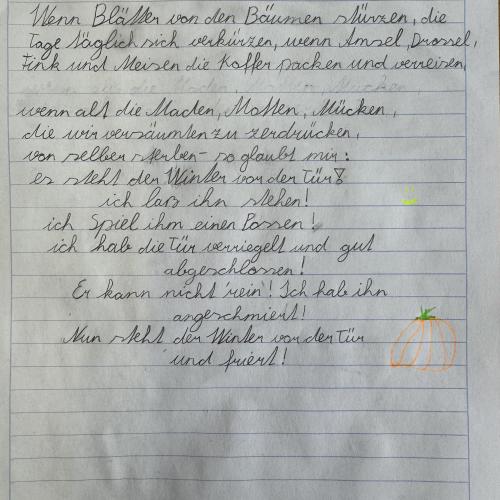 Wenn Blätter von den Bäumen stürzen, die
Tage täglich sich verkürzen, wenn Amsel, Drossel,
Fink und Meisen die Koffer packen und verreisen,
wenn all die Maden, Motten, Mücken,
die wir versäumten zu zerdrücken,
von selber sterben – so glaubt mir:
es steht der Winter vor der Tür!
ich lass ihn stehen!
ich Spiel ihm einen Possen!
ich hab die Tür verriegelt und gut
abgeschlossen!
Er kann nicht 'rein! Ich hab ihn
angeschmiert!
Nun steht der Winter vor der Tür
und friert!